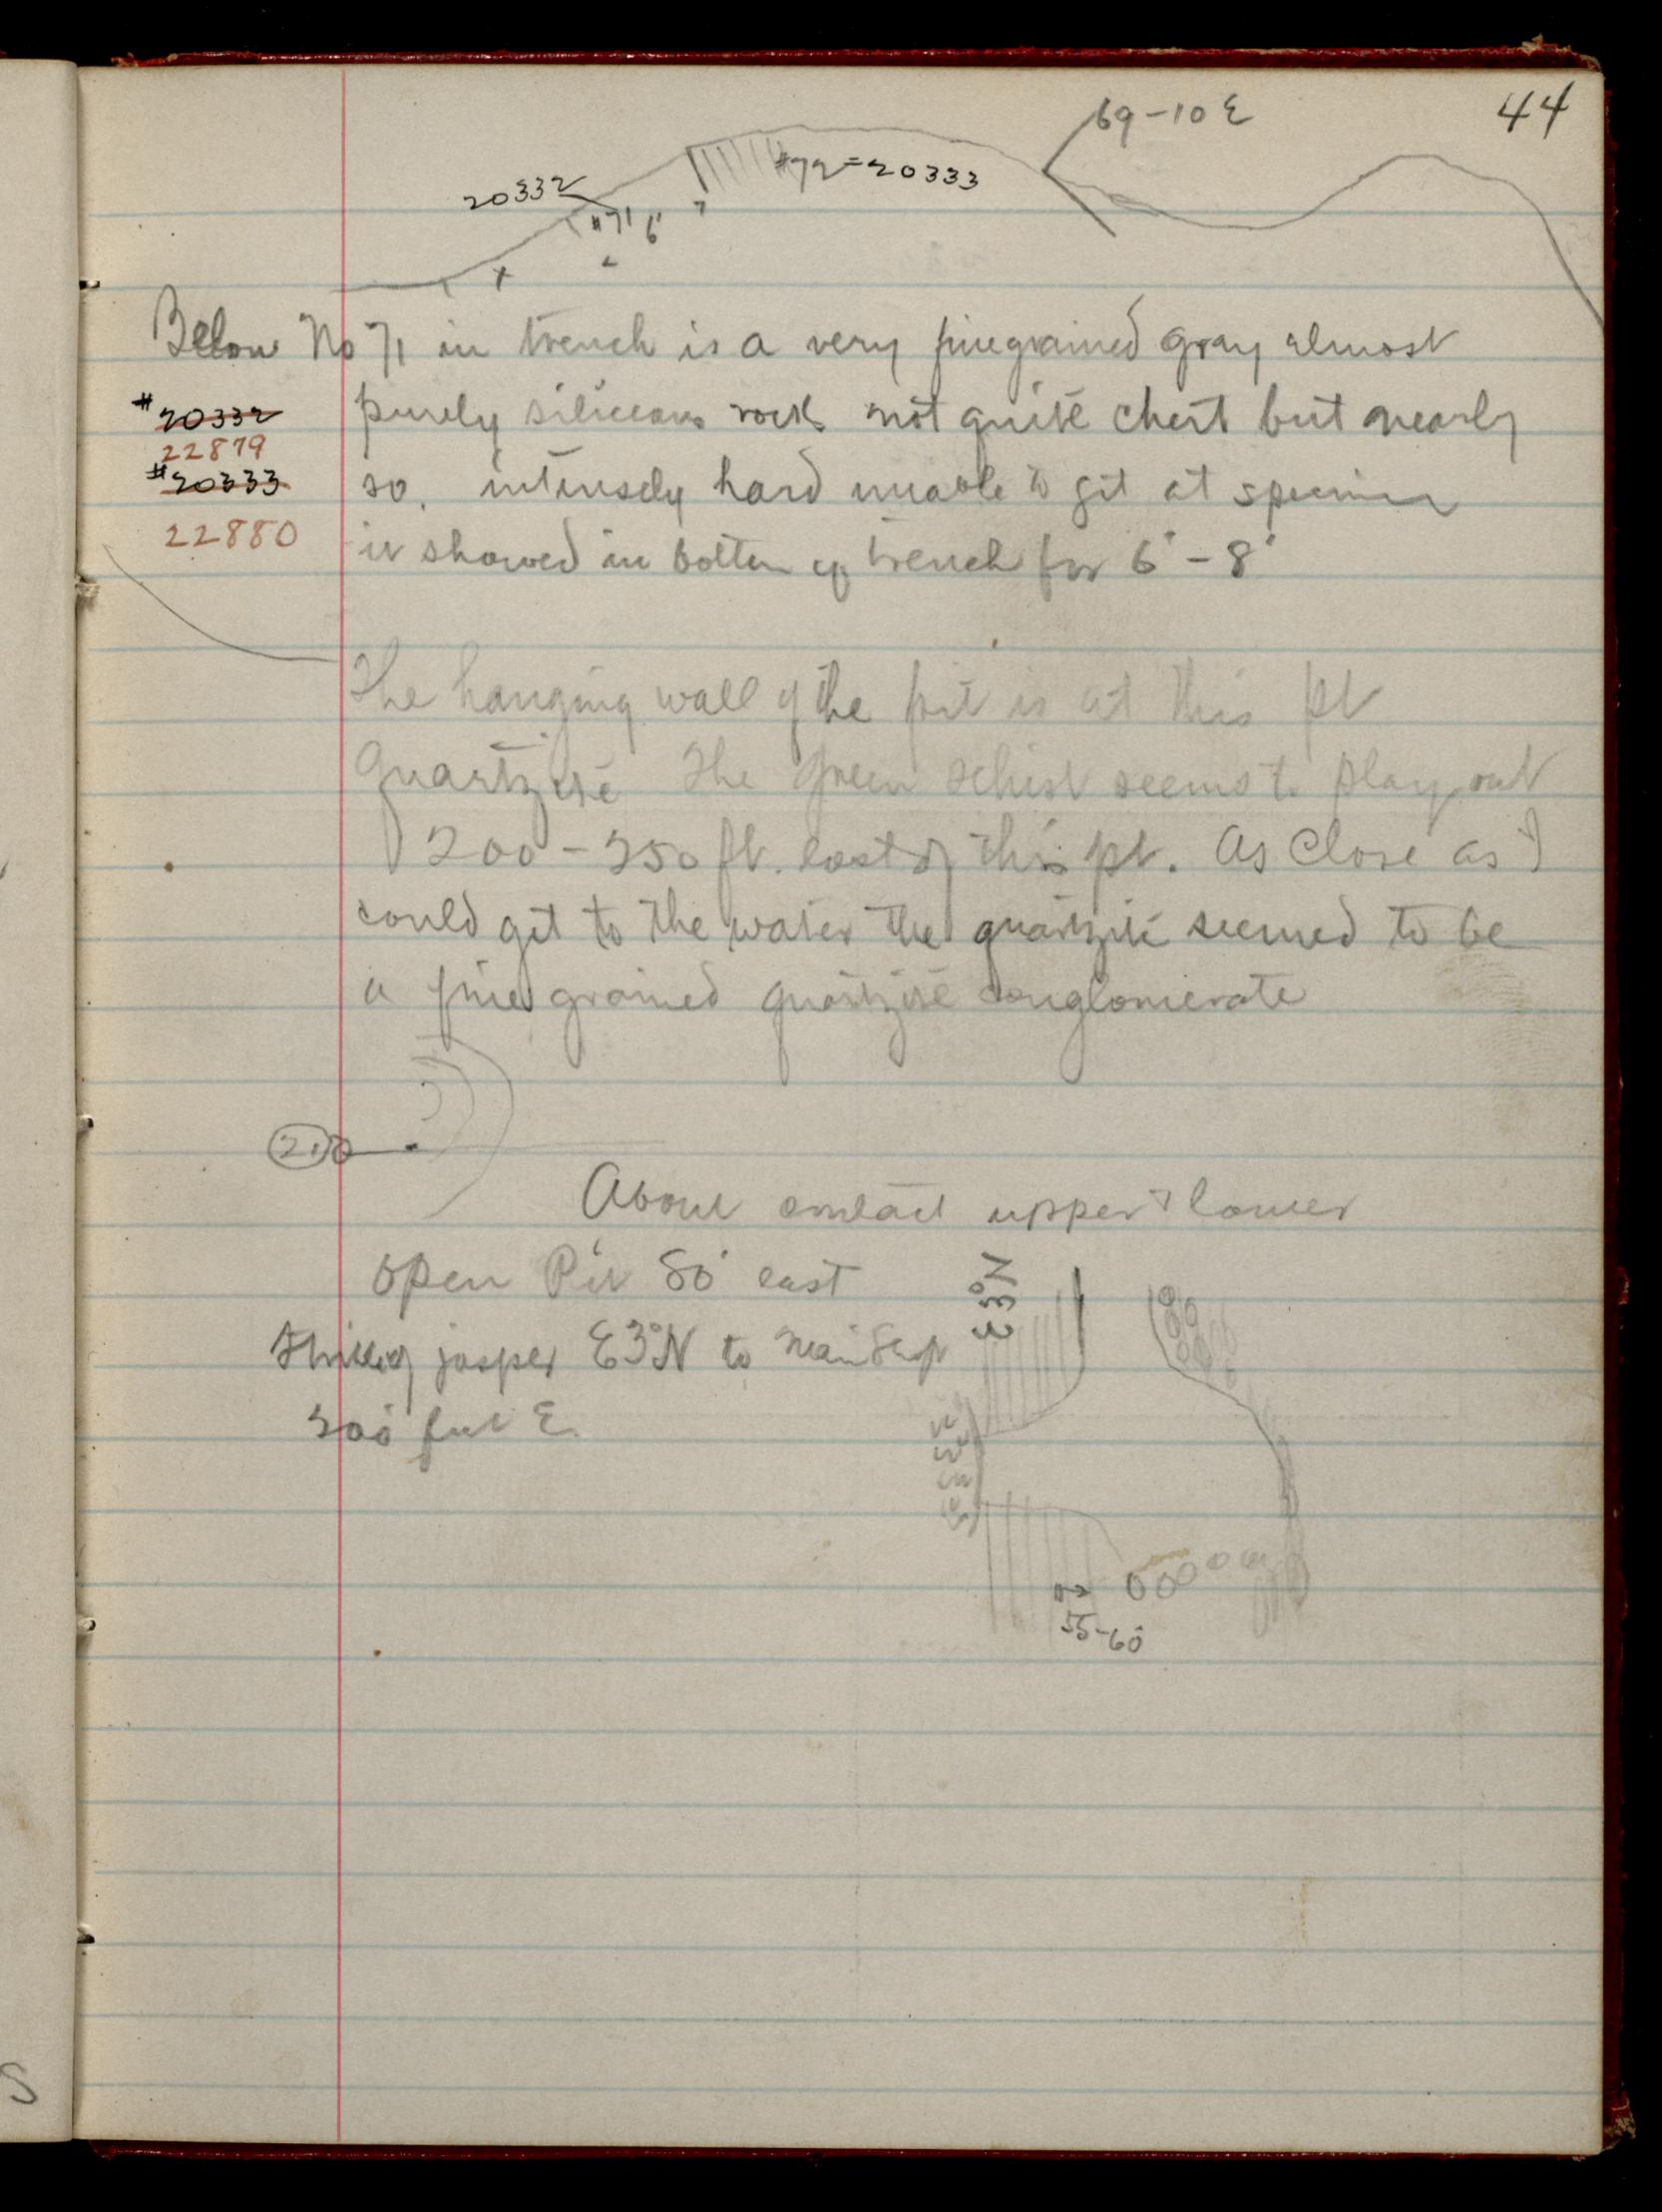 44
69-10 E
20332
#72=20333
#71 6'
Below No 71 in trench is a very finegrained gray almost
#20332
purely siliceous rock not quite chert but nearly
22879
#20333
so. intensely hard unable to git at specimen
22880
it showed in bottom of trench for 6'-8'
The hanging wall of the pit is at this pt
quartzite The green schist seems to play out
200-250 ft. east of this pt. As close as I
could git to the water the quartzite seemed to be
a fine grained quartzite conglomerate
About contact upper & lower
Open Pit 80' east
E3°N
Strike of jasper E3°N to
200 feet E.
55-60